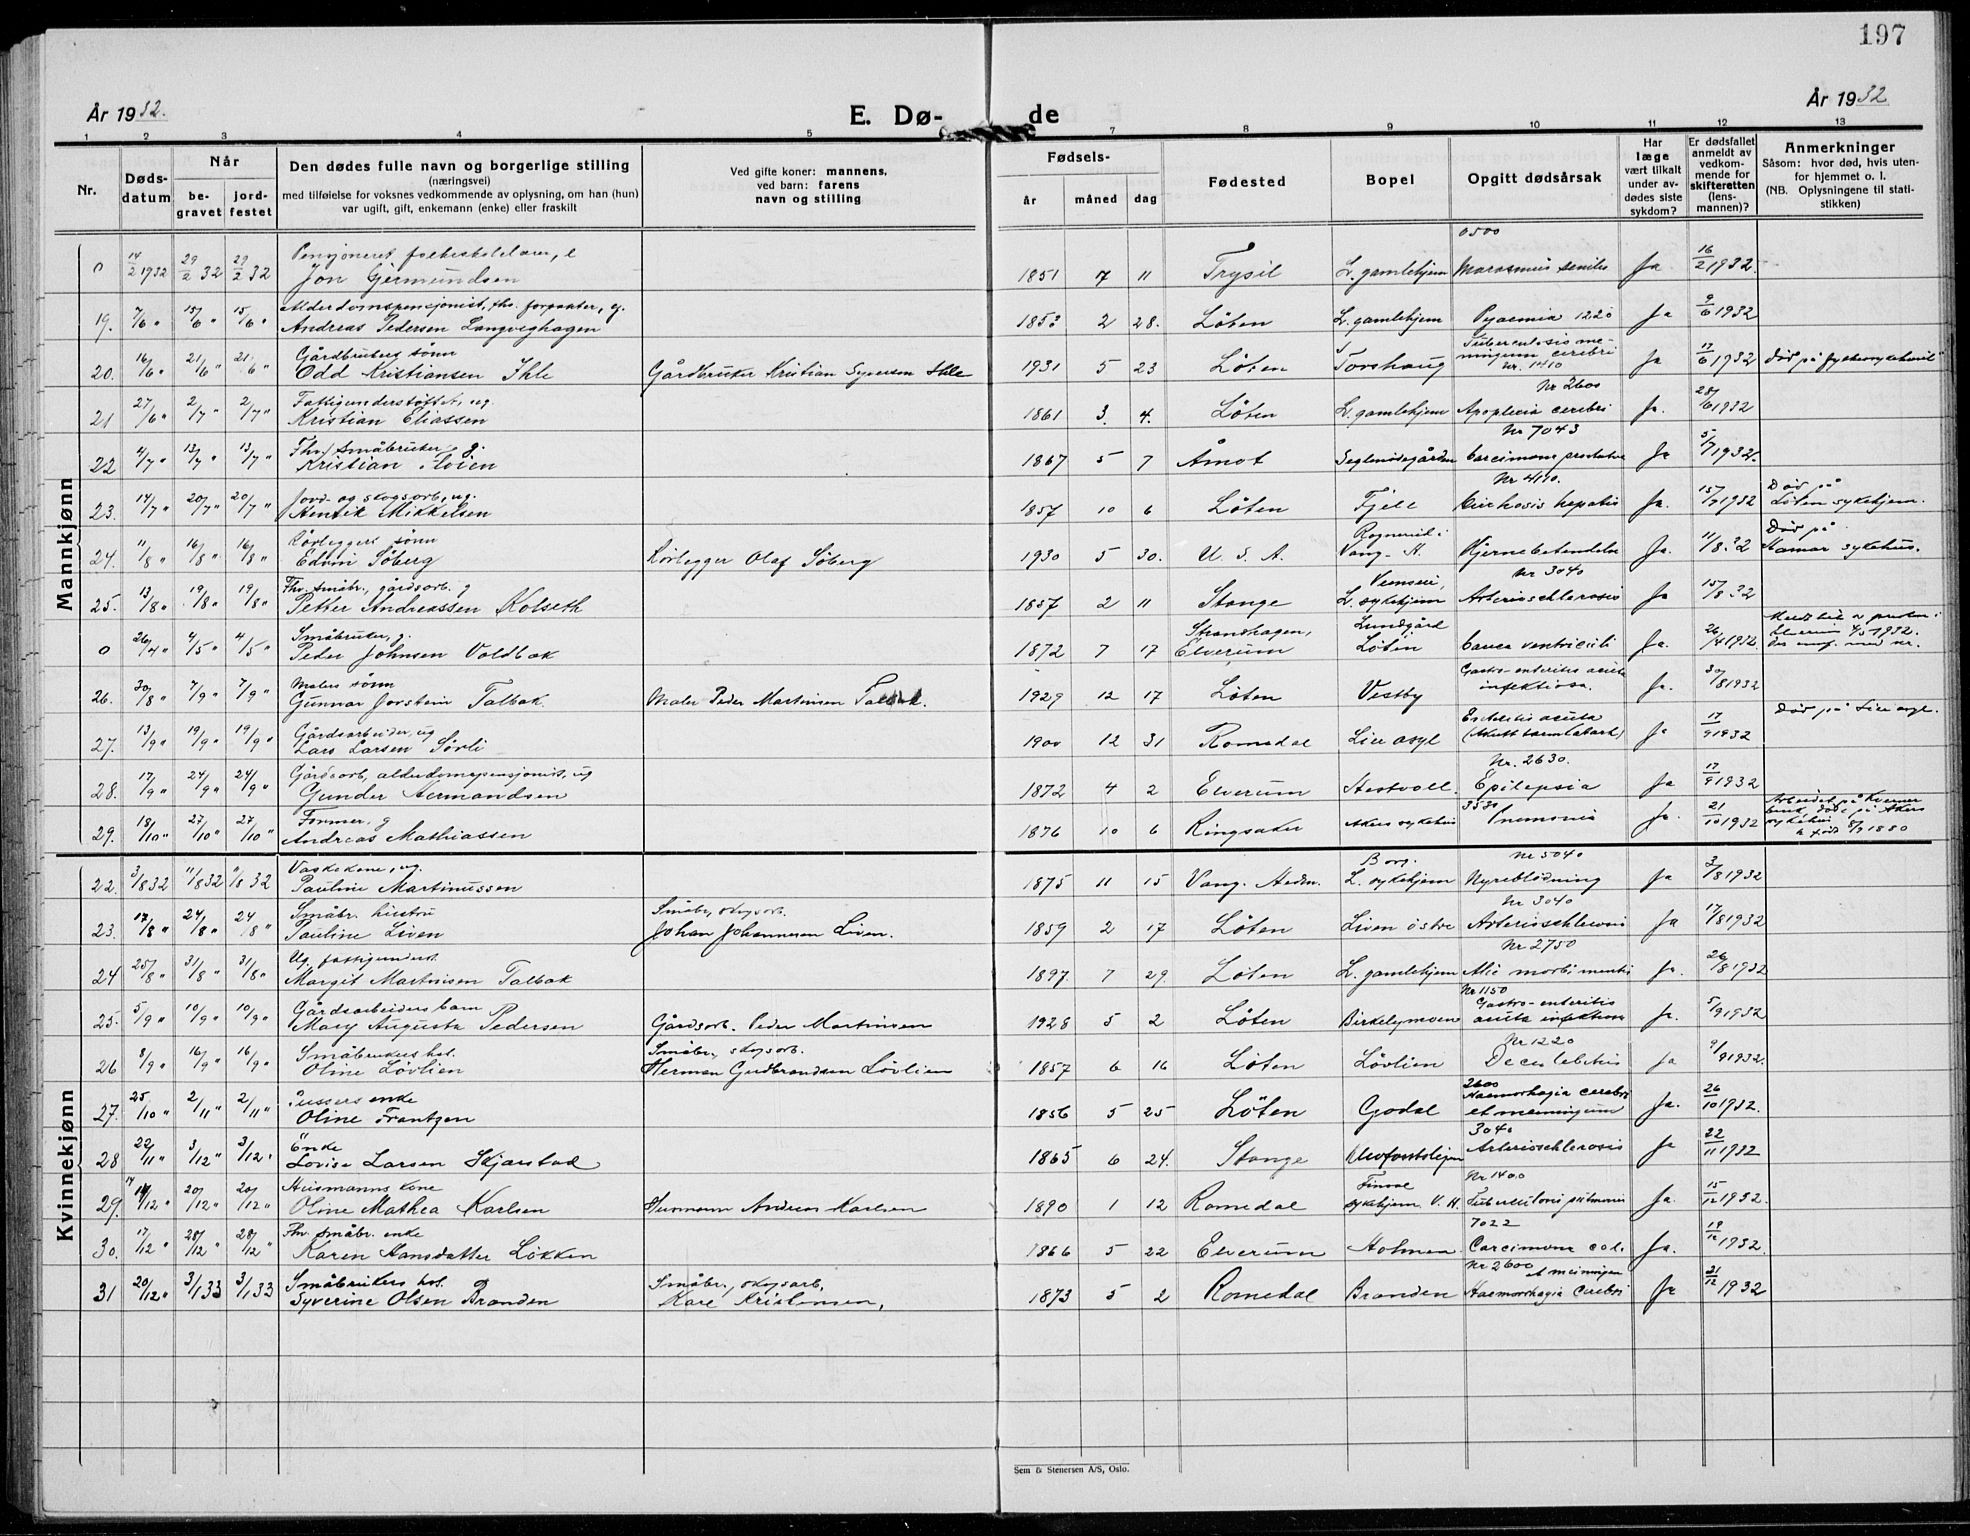 197
År 1932.
E. Dø-
de
År 1932
1 2 3 4 5 7 8 9 10 11 12 13
Nr.
Døds-
datum
Når
be-
gravet
jord-
festet
Den dødes fulle navn og borgerlige stilling
(næringsvei)
med tilføielse for voksnes vedkommende av oplysning, om han (hun)
var ugift, gift, enkemann (enke) eller fraskilt
Ved gifte koner: mannens,
ved barn: farens
navn og stilling
Fødsels-
år måned dag
Fødested
Bopel
Opgitt dødsårsak
Har
læge
vært tilkalt
under av-
dødes siste
sykdom?
Er dødsfallet
anmeldt av
vedkom-
mende for
skifteretten
(lens-
mannen)?
Anmerkninger
Såsom: hvor død, hvis uten-
for hjemmet o. l.
(NB. Oplysningene til stati-
stikken)
Mannkjønn
0500
0 14/2 1932 29/2 32 29/2 32 Jon Gjermundsen 1851 7 11 Trysil L. gamlehjem Marasmus senilis Ja 16/2 1932.
Alderdomspensjonist, fhv. forpakter, g.
19. 7/6 " 15/6 " 15/6 " Andreas Pedersen Langveghagen 1853 2 28. Løten L. gamlehjem Pyaemia 1220 Ja 9/6 1932
Gårdbrukers sønn Tuberculosis me-
20. 16/6 " 21/6 " 21/6 " Odd Kristiansen Ihle Gårdbruker Kristian Syversen Ihle 1931 5 23 Løten Torshaug ningum cerebri Ja 17/6 1932 død på fylkessykehuset
Nr. 1410
Fattigunderstøttet, ug. Nr 2600
21 27/6 " 2/7 " 2/7 " Kristian Eliassen 1861 3. 4. Løten L. gamlehjem Apoplexia cerebri Ja. 28/6 1932
Fhv. Småbruker g. Nr 7043
22 4/7 " 13/7 " 13/7 " Kristian Moien 1867 5 7 Åmot Ja 5/7 1932.
Jord og skogsarb., ug. Nr 4110. Død på
23. 14/7 " 20/7 " 20/7 " Henrik Mikkelsen 1857 10 6 Løten Fjell Cirrhosis hepatis Ja. 15/7 1932 Løten sykehjem.
Rørleggers sønn Rognerud i Død på
24. 11/8 " 16/8 " 16/8 " Edvin Søberg Rørlegger Olaf Søberg 1930 5 30. U. S. A. Vang. H. Hjernebetendelse Ja. 11/8.32 Hamar sykehus.
Fhv. småbr., gårdsarb. g Nr 3040
25. 13/8 " 19/8 " 19/8 " Petter Andreassen Kolseth 1857 2 11 Stange L. sykehjem Arterioschlerosis Ja 15/8 32
Småbruker, g. Strandhagen, Lundgård
0 26/4 " 4/5 " 4/5 " Peder Johnsen Voldbak 1872 7 17 Elverum Løten Cancer ventriculi Ja. 26/4 1932.
Malers sønn Gastro-enteritis acuta
26. 30/8 " 7/9 " 7/9 " Gunnar Jorstein Talbak. Maler Peder Martinsen Talbak. 1929 12 17 Løten Vestby infektiosa. Ja. 30/8 1932
Gårdsarbeider, ug Død på Lier asyl.
27. 13/9 " 19/9 " 19/9 " Lars Larsen Sørli 1900 12 31 Romedal Lier asyl Ja 17/9 1932
Gårdsarb, alderdomspensjonist, ug Nr. 2630.
28. 17/9 " 24/9 " 24/9 " Gunder Hermandsen 1872 4 2 Elverum Hestvoll. Epilepsia Ja 17/9 1932
Former, g 3530
29. 18/10 " 27/10 " 27/10 " Andreas Mathiassen 1876 10 6 Ringsaker Akers sykehus Pnemonia Ja. 21/10 1932
Kvinnekjønn
Vaskekone, ug. Borg. Nr 5040
22. 3/8 32 11/8 32 11/8 32 Pauline Martinussen 1875 11 15 Vang. Hedm. L. sykehjem Nyreblødning Ja 3/8 1932
Småbr. hustru Småbr., skogsarb. Nr 3040
23. 17/8 " 24/8 " 24/8 " Pauline Liven Johan Johannesen Liven. 1859 2 17 Løten Liven østre Arterioschlerosis Ja 17/8 1932
Ug. fattigunderst. Nr 2750
24 25/8 " 31/8 " 31/8 " Margit Martinsen Talbak 1897. 7 29. Løten L. gamlehjem Alii morbi mentis Ja. 26/8 1932
Gårdsarbeiders barn Nr 1150 Gastro-enteritis
25. 5/9 " 10/9 " 10/9 " Mary Augusta Pedersen Gårdsarb. Peder Martinsen 1928 5 2 Løten Birkelymoen acuta infektiosa Ja. 5/9 1932
Småbrukers hst. Småbr., skogsarb. Nr 1220
26 8/9 " 16/9 " 16/9 " Oline Løvlien Herman Gudbrandsen Løvlien 1857 6 16 Løten Løvlien Ja 9/9 1932.
Pussers enke 2600 Haemorrhagia cerebri
27. 25/10 " 2/11 " 2/11 " Oline Frantzen 1856 5 25 Løten Godal et meningum Ja. 26/10 1932.
Enke 3040
28 22/11 " 3/12 " 3/12 " Lovise Larsen Skjærstad 1865 6 24. Stange Arterioschlerosis Ja 22/11 1932
Husmanns kone Finsal Nr 1400
29. 14/12 " 20/12 " 20/12 " Oline Mathea Karlsen Husmann Andreas Karlsen 1890 1 12 Romedal sykehjem. V. H. Tuberculosis pulmonis Ja. 15/12 1932.
Fhv. småbr. enke 7022
30. 17/12 " 28/12 " 28/12 " Karen Hansdatter Løkken 1866 5 22 Elverum Holmen. Carcimoma coli Ja. 19/12 1932.
Småbrukers hst. Småbr., skogsarb, Nr 2600 et meningen
31 20/12 " 3/1 33 3/1 33 Syverine Olsen Branden Kare Kristensen, 1873 5 2 Romedal Branden Haemorrhagia cerebri Ja 21/12 1932
Sem & Stenersen A/S, Oslo.